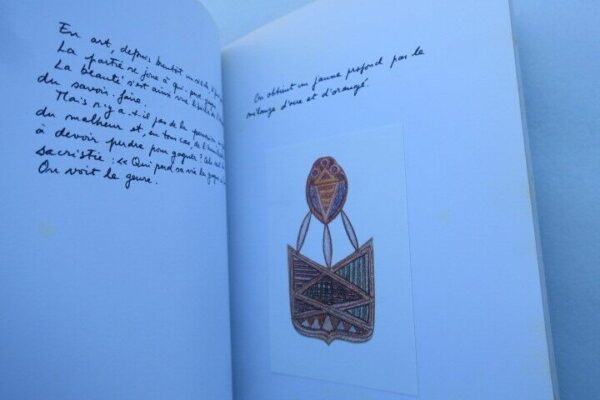 En art, depuis bientôt un siècle,
La partie se joue à qui perd gagne.
La beauté s'est ainsi vue
du savoir-faire.
Mais n'y a-t-il pas de la
du malheur et, en tout cas, de l'
à devoir perdre pour gagner? Cela
sacristie: «Qui perd sa vie la gagne
On voit le genre.
On obtient un jaune profond par le
mélange d'ocre et d'orangé.